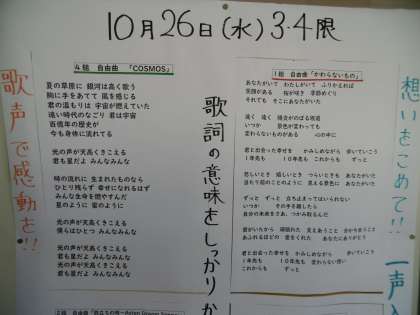 10月26日(水)3・4限
歌声で感動を!!
4組 自由曲 「COSMOS」
夏の草原に 銀河は高く歌う
胸に手をあてて 風を感じる
君の温もりは 宇宙が燃えていた
遠い時代のなごり 君は宇宙
百億年の歴史が
今も身体に流れてる
光の声が天高くきこえる
君も星だよ みんなみんな
時の流れに 生まれたものなら
ひとり残らず 幸せになれるはず
みんな生命を燃やすんだ
星のように 蛍のように
光の声が天高くきこえる
僕らはひとつ みんなみんな
光の声が天高くきこえる
君も星だよ みんなみんな
歌詞の意味をしっかり か
1組 自由曲「かわらないもの」
あなたがいて わたしがいて ふりかえれば
笑顔がある
それでも そこにあなたがいた
遠く 遠く
いつか 景色が変わっても
変わらないものがある
君と出会った幸せを かみしめながら 歩いていこう
1年先も 10年先も これからも ずっと
ずっと ずっと
君と出会った幸せを かみしめながら 歩いていこう
これからも ずっと
想いをこめて!!
一声入